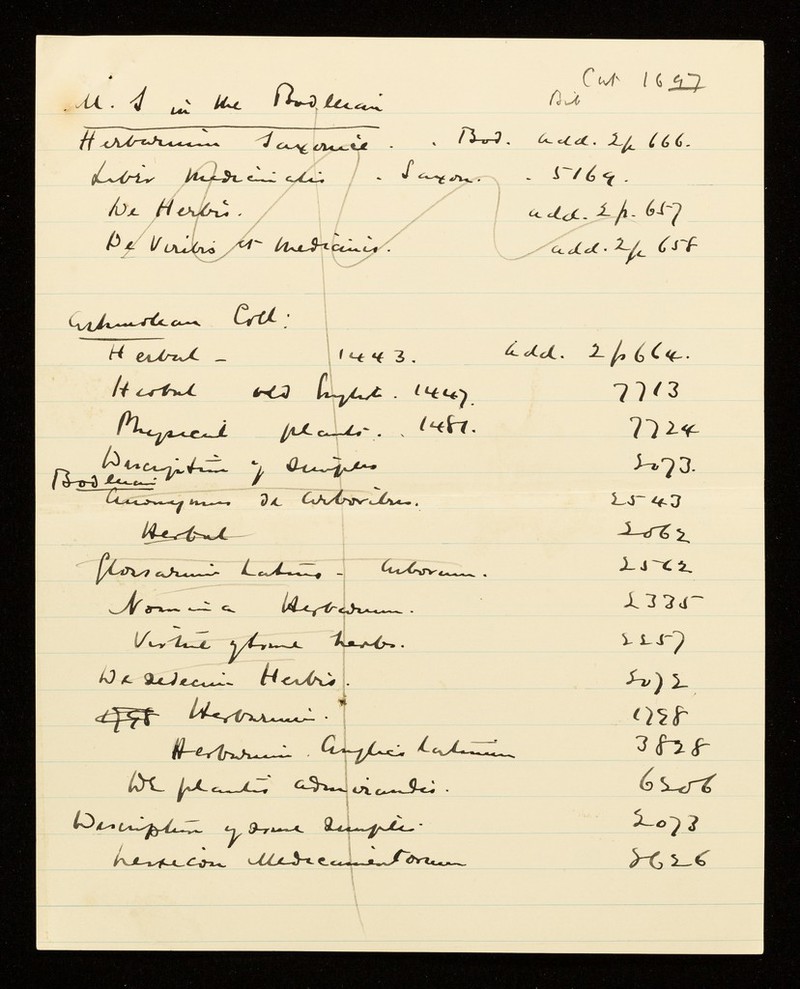 Cat 1697
M. S in the Bodleian
Bib
Herbarium Saxonice . . Bod. add. 2p 666.
Liber Medicinalis . Saxon. . 5169.
De Herbis. add. 2 p. 657
De Viribis et Medicinis. add. 2p 658
Ashmolean Coll:
Herbal - 1443. add. 2p 664.
Herbal old English. 1447. 7713
Physical plants. . 1481. 7724
Description of Simples 2073.
Bodleian
Anonymus de Arboribus. 2543
Herbal 2062
Glossarium Latino - Arborum. 2562
Nomina Herbarum. 2335
Virtue of some herbs. 2257
De Sedecim Herbis. 2072
1798 Herbarum. 1798
Herbarium Anglico Latinum 3828
De plantis admirandis. 6206
Description of some simples. 2073
Lexicon Medicamentorum 8626